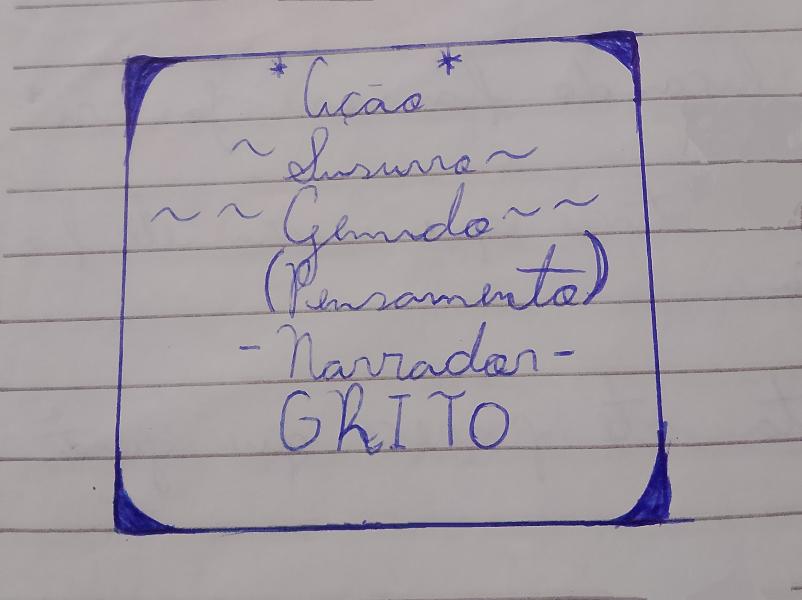 * Ação *
~ Susurro ~
~ ~ Gemido ~ ~
(Pensamento)
- Narrador -
GRITO